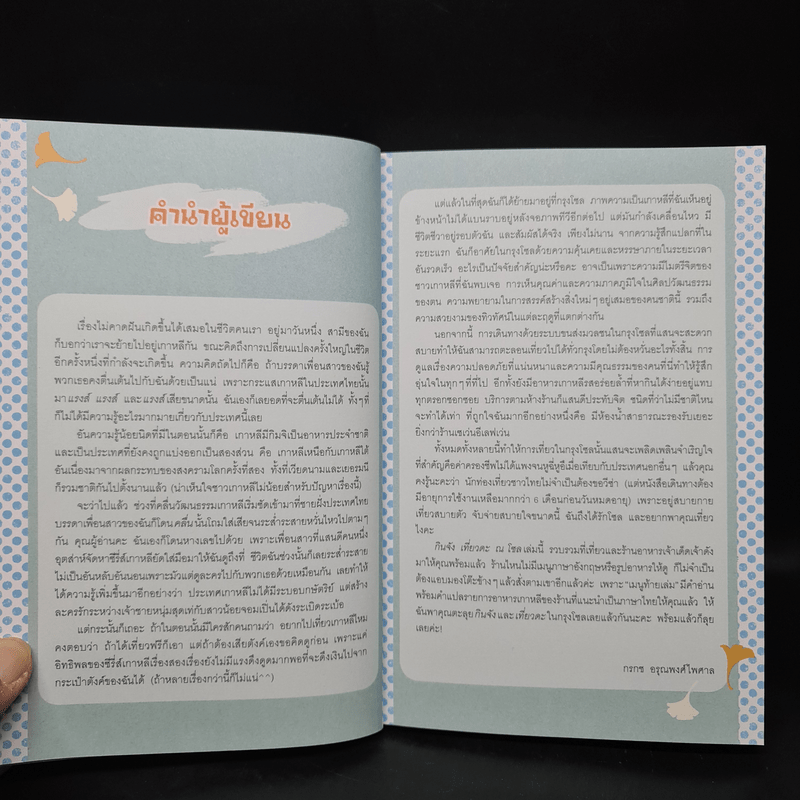 คำนำผู้เขียน
เรื่องไม่คาดฝันเกิดขึ้นได้เสมอในชีวิตคนเรา อยู่มาวันหนึ่ง สามีของฉัน
ก็บอกว่าเราจะย้ายไปอยู่เกาหลีกัน ขณะคิดถึงการเปลี่ยนแปลงครั้งใหญ่ในชีวิต
อีกครั้งหนึ่งที่กำลังจะเกิดขึ้น ความคิดถัดไปก็คือ ถ้าบรรดาเพื่อนสาวของฉันรู้
พวกเธอคงตื่นเต้นไปกับฉันด้วยเป็นแน่ เพราะกระแสเกาหลีในประเทศไทยนั้น
มาแรงส์ แรงส์ และแรงส์เสียขนาดนั้น ฉันเองก็เลยอดที่จะตื่นเต้นไม่ได้ ทั้งๆ ที่
ก็ไม่ได้มีความรู้อะไรมากมายเกี่ยวกับประเทศนี้เลย
อันความรู้น้อยนิดที่มีในตอนนั้นก็คือ เกาหลีมีกิมจิเป็นอาหารประจำชาติ
และเป็นประเทศที่ยังคงถูกแบ่งออกเป็นสองส่วน คือ เกาหลีเหนือกับเกาหลีใต้
อันเนื่องมาจากผลกระทบของสงครามโลกครั้งที่สอง ทั้งที่เวียดนามและเยอรมนี
ก็รวมชาติกันไปตั้งนานแล้ว (น่าเห็นใจชาวเกาหลีไม่น้อยสำหรับปัญหาเรื่องนี้)
จะว่าไปแล้ว ช่วงที่คลื่นวัฒนธรรมเกาหลีเริ่มซัดเข้ามาที่ชายฝั่งประเทศไทย
บรรดาเพื่อนสาวของฉันก็โดนคลื่นนั้นโถมใส่เสียจนระส่ำระสายหวั่นไหวไปตามๆ
กัน คุณผู้อ่านคะ ฉันเองก็โดนหางเลขไปด้วย เพราะเพื่อนสาวที่แสนดีคนหนึ่ง
อุตส่าห์จัดหาซีรี่ส์เกาหลียัดใส่มือมาให้ฉันดูถึงที่ ชีวิตฉันช่วงนั้นก็เลยระส่ำระสาย
ไม่เป็นอันหลับอันนอนเพราะมัวแต่ดูละครไปกับพวกเธอด้วยเหมือนกัน เลยทำให้
ได้ความรู้เพิ่มขึ้นมาอีกอย่างว่า ประเทศเกาหลีไม่ได้มีระบอบกษัตริย์ แต่สร้าง
ละครรักระหว่างเจ้าชายหนุ่มสุดเท่กับสาวน้อยจอมเปิ่นได้ดังระเบิดระเบ้อ
แต่กระนั้นก็เถอะ ถ้าในตอนนั้นมีใครสักคนถามว่า อยากไปเที่ยวเกาหลีไหม
คงตอบว่า ถ้าได้เที่ยวฟรีก็เอา แต่ถ้าต้องเสียตังค์เองขอคิดดูก่อน เพราะแค่
อิทธิพลของซีรี่ส์เกาหลีเรื่องสองเรื่องยังไม่มีแรงดึงดูดมากพอที่จะดึงเงินไปจาก
กระเป๋าตังค์ของฉันได้ (ถ้าหลายเรื่องกว่านี้ก็ไม่แน่^^)
แต่แล้วในที่สุดฉันก็ได้ย้ายมาอยู่ที่กรุงโซล ภาพความเป็นเกาหลีที่ฉันเห็นอยู่
ข้างหน้าไม่ได้แบนราบอยู่หลังจอภาพทีวีอีกต่อไป แต่มันกำลังเคลื่อนไหว มี
ชีวิตชีวาอยู่รอบตัวฉัน และสัมผัสได้จริง เพียงไม่นาน จากความรู้สึกแปลกที่ใน
ระยะแรก ฉันก็อาศัยในกรุงโซลด้วยความคุ้นเคยและหรรษาภายในระยะเวลา
อันรวดเร็ว อะไรเป็นปัจจัยสำคัญน่ะหรือคะ อาจเป็นเพราะความมีไมตรีจิตของ
ชาวเกาหลีที่ฉันพบเจอ การเห็นคุณค่าและความภาคภูมิใจในศิลปวัฒนธรรม
ของตน ความพยายามในการสรรค์สร้างสิ่งใหม่ๆ อยู่เสมอของคนชาตินี้ รวมถึง
ความสวยงามของทิวทัศน์ในแต่ละฤดูที่แตกต่างกัน
นอกจากนี้ การเดินทางด้วยระบบขนส่งมวลชนในกรุงโซลที่แสนจะสะดวก
สบายทำให้ฉันสามารถตะลอนเที่ยวไปได้ทั่วกรุงโดยไม่ต้องหวั่นอะไรทั้งสิ้น การ
ดูแลเรื่องความปลอดภัยที่แน่นหนาและความมีคุณธรรมของคนที่นี่ทำให้รู้สึก
อุ่นใจในทุกๆ ที่ที่ไป อีกทั้งยังมีอาหารเกาหลีรสอร่อยล้ำที่หากินได้ง่ายอยู่แทบ
ทุกตรอกซอกซอย บริการตามห้างร้านก็แสนดีประทับจิต ชนิดที่ว่าไม่มีชาติไหน
จะทำได้เท่า ที่ถูกใจฉันมากอีกอย่างหนึ่งคือ มีห้องน้ำสาธารณะรองรับเยอะ
ยิ่งกว่าร้านเซเว่นอีเลฟเว่น
ทั้งหมดทั้งหลายนี้ทำให้การเที่ยวในกรุงโซลนั้นแสนจะเพลิดเพลินจำเริญใจ
ที่สำคัญคือค่าครองชีพไม่ได้แพงจนหูฉี่หูอื้อเมื่อเทียบกับประเทศนอกอื่นๆ แล้วคุณ
คงรู้นะคะว่า นักท่องเที่ยวชาวไทยไม่จำเป็นต้องขอวีซ่า (แต่หนังสือเดินทางต้อง
มีอายุการใช้งานเหลือมากกว่า 6 เดือนก่อนวันหมดอายุ) เพราะอยู่สบายกาย
เที่ยวสบายตัว จับจ่ายสบายใจขนาดนี้ ฉันถึงได้รักโซล และอยากพาคุณเที่ยว
ไงคะ
กินจัง เที่ยวดะ ณ โซล เล่มนี้ รวบรวมที่เที่ยวและร้านอาหารเจ้าเด็ดเจ้าดัง
มาให้คุณพร้อมแล้ว ร้านไหนไม่มีเมนูภาษาอังกฤษหรือรูปอาหารให้ดู ก็ไม่จำเป็น
ต้องแอบมองโต๊ะข้างๆ แล้วสั่งตามเขาอีกแล้วค่ะ เพราะ “เมนูท้ายเล่ม” มีคำอ่าน
พร้อมคำแปลรายการอาหารเกาหลีของร้านที่แนะนำเป็นภาษาไทยให้คุณแล้ว ให้
ฉันพาคุณตะลุย กินจัง และ เที่ยวดะ ในกรุงโซลเลยแล้วกันนะคะ พร้อมแล้วก็ลุย
เลยค่ะ!
กรกช อรุณพงศ์ไพศาล